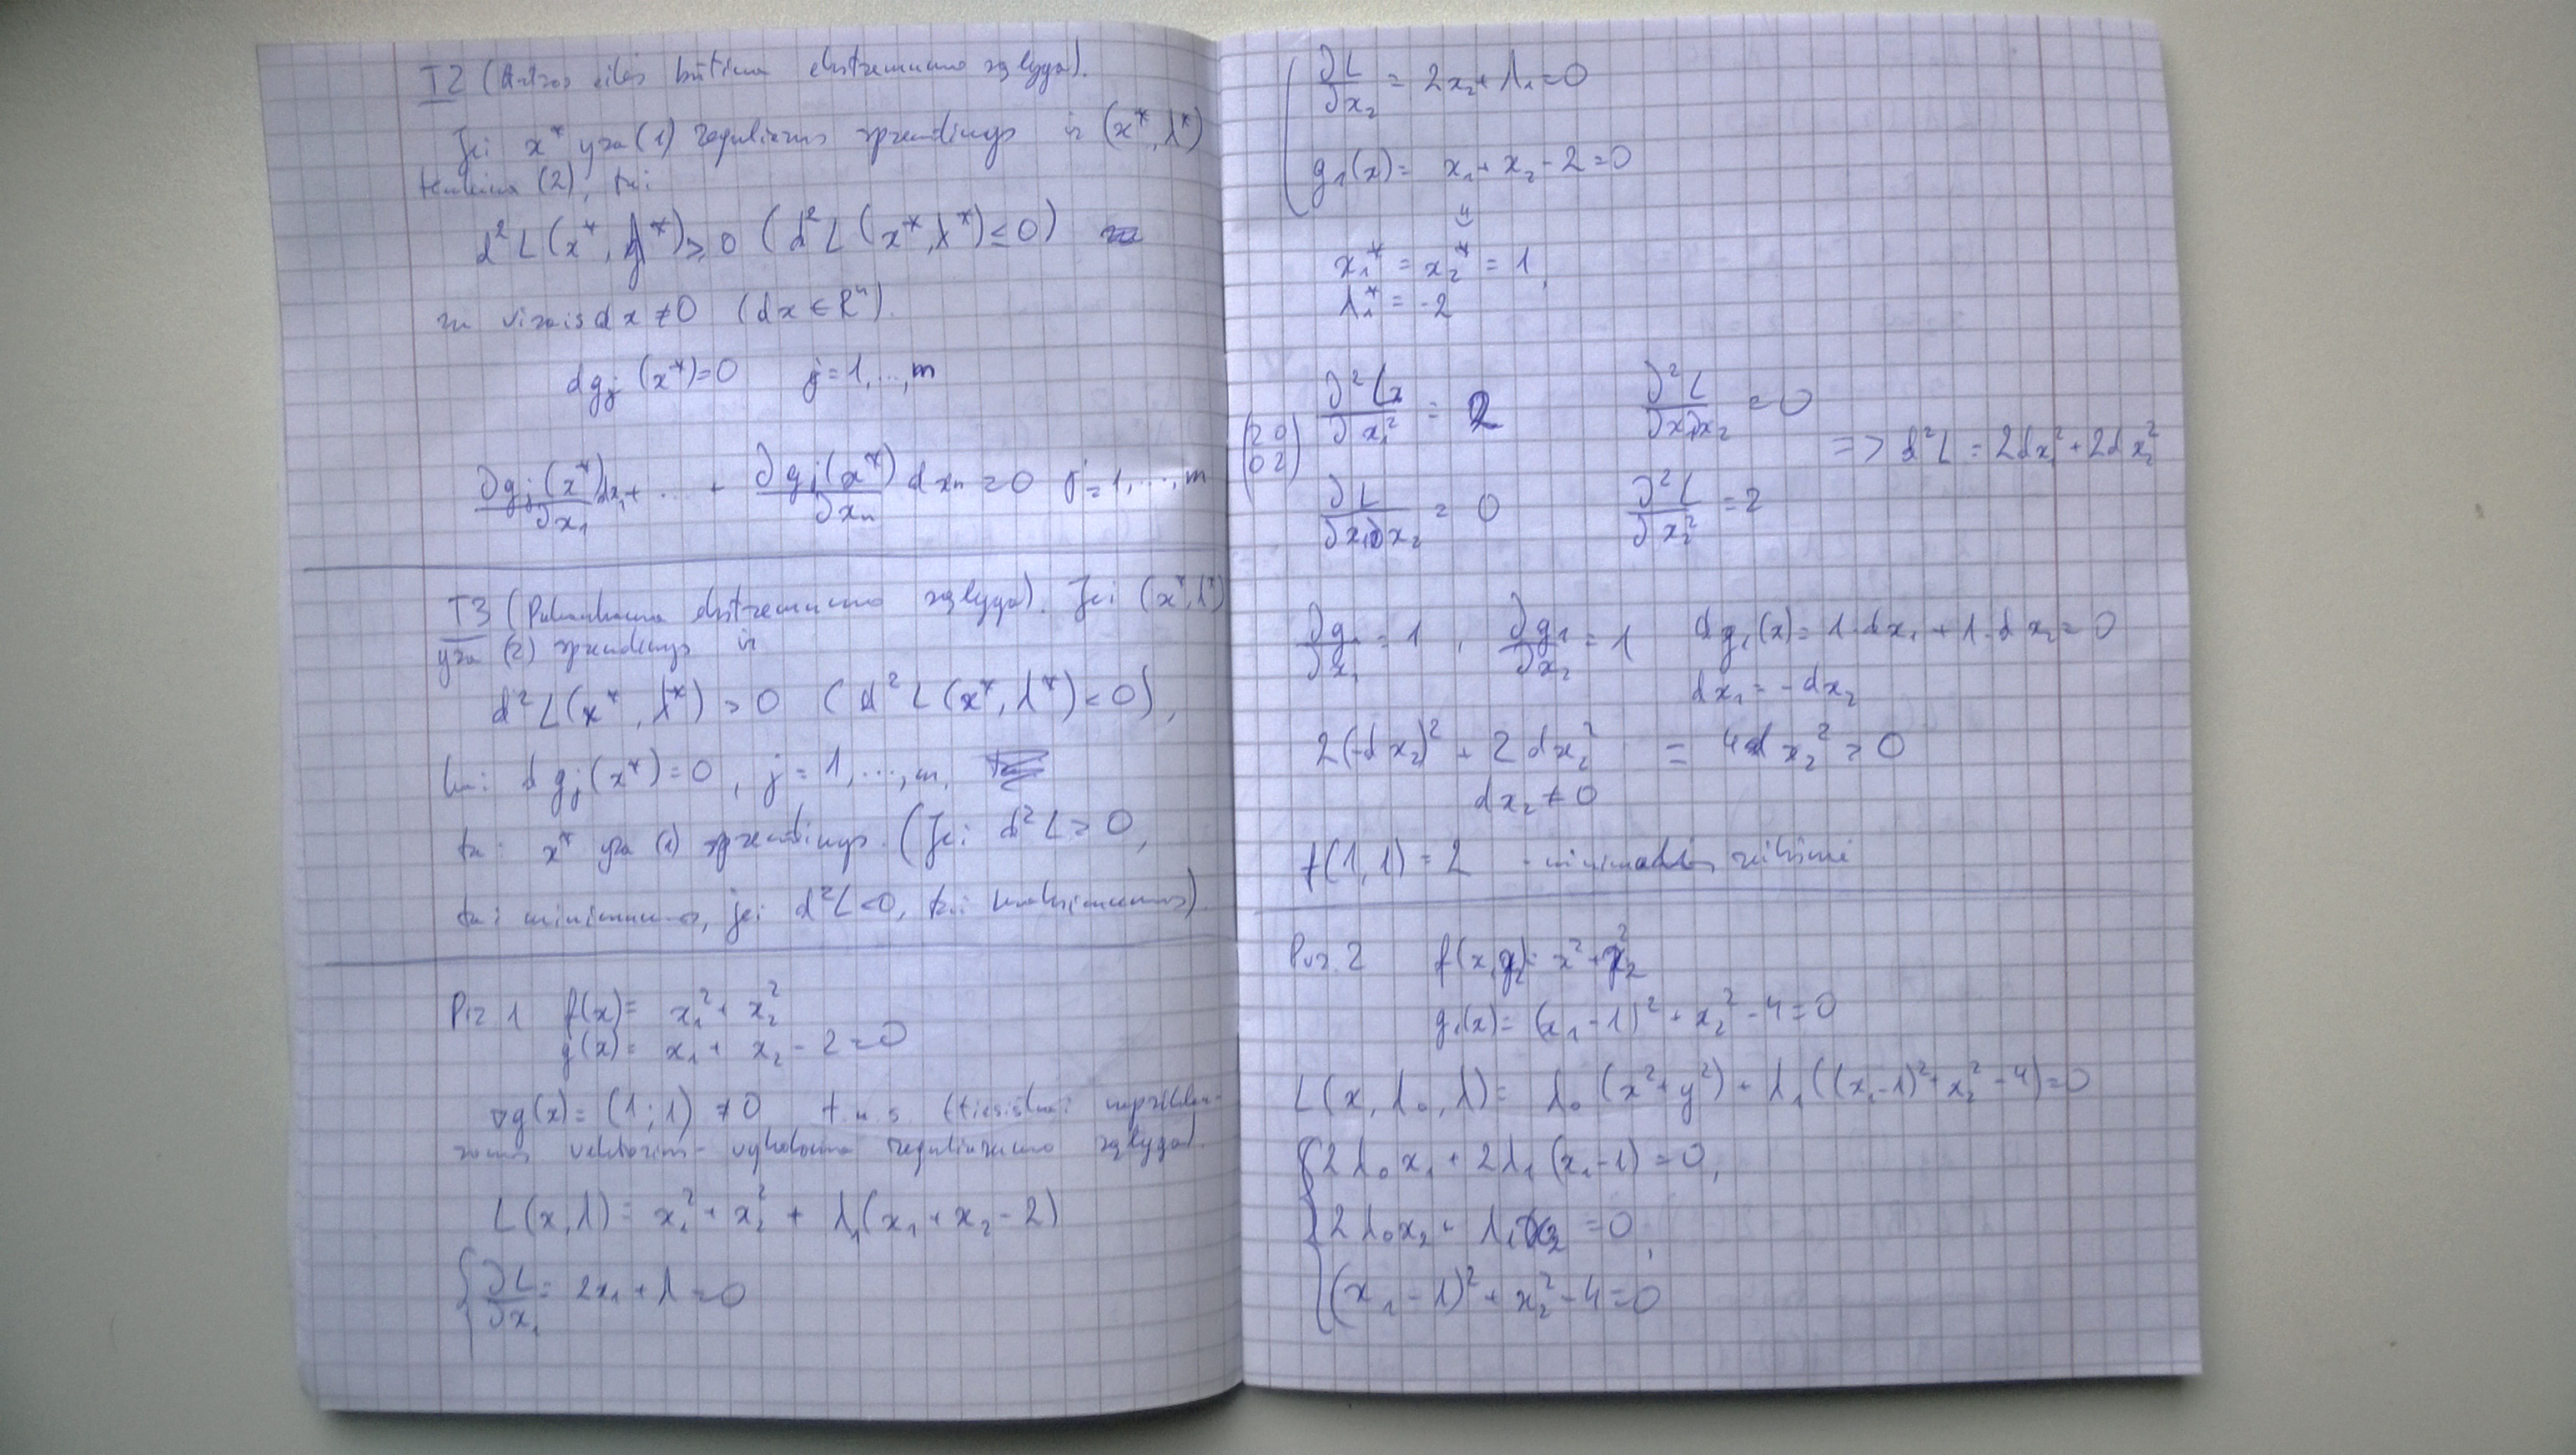 T2 (Antros eilės būtina ekstremumo sąlyga).
Jei x* yra (1) reguliarus sprendinys ir (x*, λ*)
tenkina (2), tai
d²L(x*, λ*) ≥ 0 (d²L(x*, λ*) ≤ 0)
su visais dx ≠ 0 (dx ∈ Rⁿ).
dgⱼ(x*) = 0 j = 1, ..., m
∂gⱼ(x*)/∂x₁ dx₁ + ... + ∂gⱼ(x*)/∂xₙ dxₙ = 0 j = 1, ..., m
T3 (Pakankama ekstremumo sąlyga). Jei (x*, λ*)
yra (2) sprendinys ir
d²L(x*, λ*) > 0 (d²L(x*, λ*) < 0),
kai dgⱼ(x*) = 0, j = 1, ..., m,
tai x* yra (1) sprendinys. (Jei d²L > 0,
tai minimumas, jei d²L < 0, tai maksimumas).
Pvz 1 f(x) = x₁² + x₂²
g(x) = x₁ + x₂ - 2 = 0
∇g(x) = (1; 1) ≠ 0 (tiesiškai nepriklau-
somas vektorius - vykdoma reguliarumo sąlyga).
L(x, λ) = x₁² + x₂² + λ₁(x₁ + x₂ - 2)
{ ∂L/∂x₁ = 2x₁ + λ = 0
∂L/∂x₂ = 2x₂ + λ₁ = 0
g₁(x) = x₁ + x₂ - 2 = 0
⇓
x₁* = x₂* = 1,
λ₁* = -2
∂²L/∂x₁² = 2 ∂²L/∂x₁∂x₂ = 0
(2 0
0 2) => d²L = 2dx₁² + 2dx₂²
∂L/∂x₁∂x₂ = 0 ∂²L/∂x₂² = 2
∂g₁/∂x₁ = 1, ∂g₁/∂x₂ = 1 dg₁(x) = 1·dx₁ + 1·dx₂ = 0
dx₁ = -dx₂
2(-dx₂)² + 2dx₂² = 4dx₂² > 0
dx₂ ≠ 0
f(1, 1) = 2 - minimali reikšmė
Pvz. 2 f(x, x₂) = x² + x₂²
g₁(x) = (x₁ - 1)² + x₂² - 4 = 0
L(x, λ₀, λ) = λ₀(x² + y²) + λ₁((x₁ - 1)² + x₂² - 4) = 0
{ 2λ₀x₁ + 2λ₁(x₁ - 1) = 0,
2λ₀x₂ + λ₁x₂ = 0,
(x₁ - 1)² + x₂² - 4 = 0